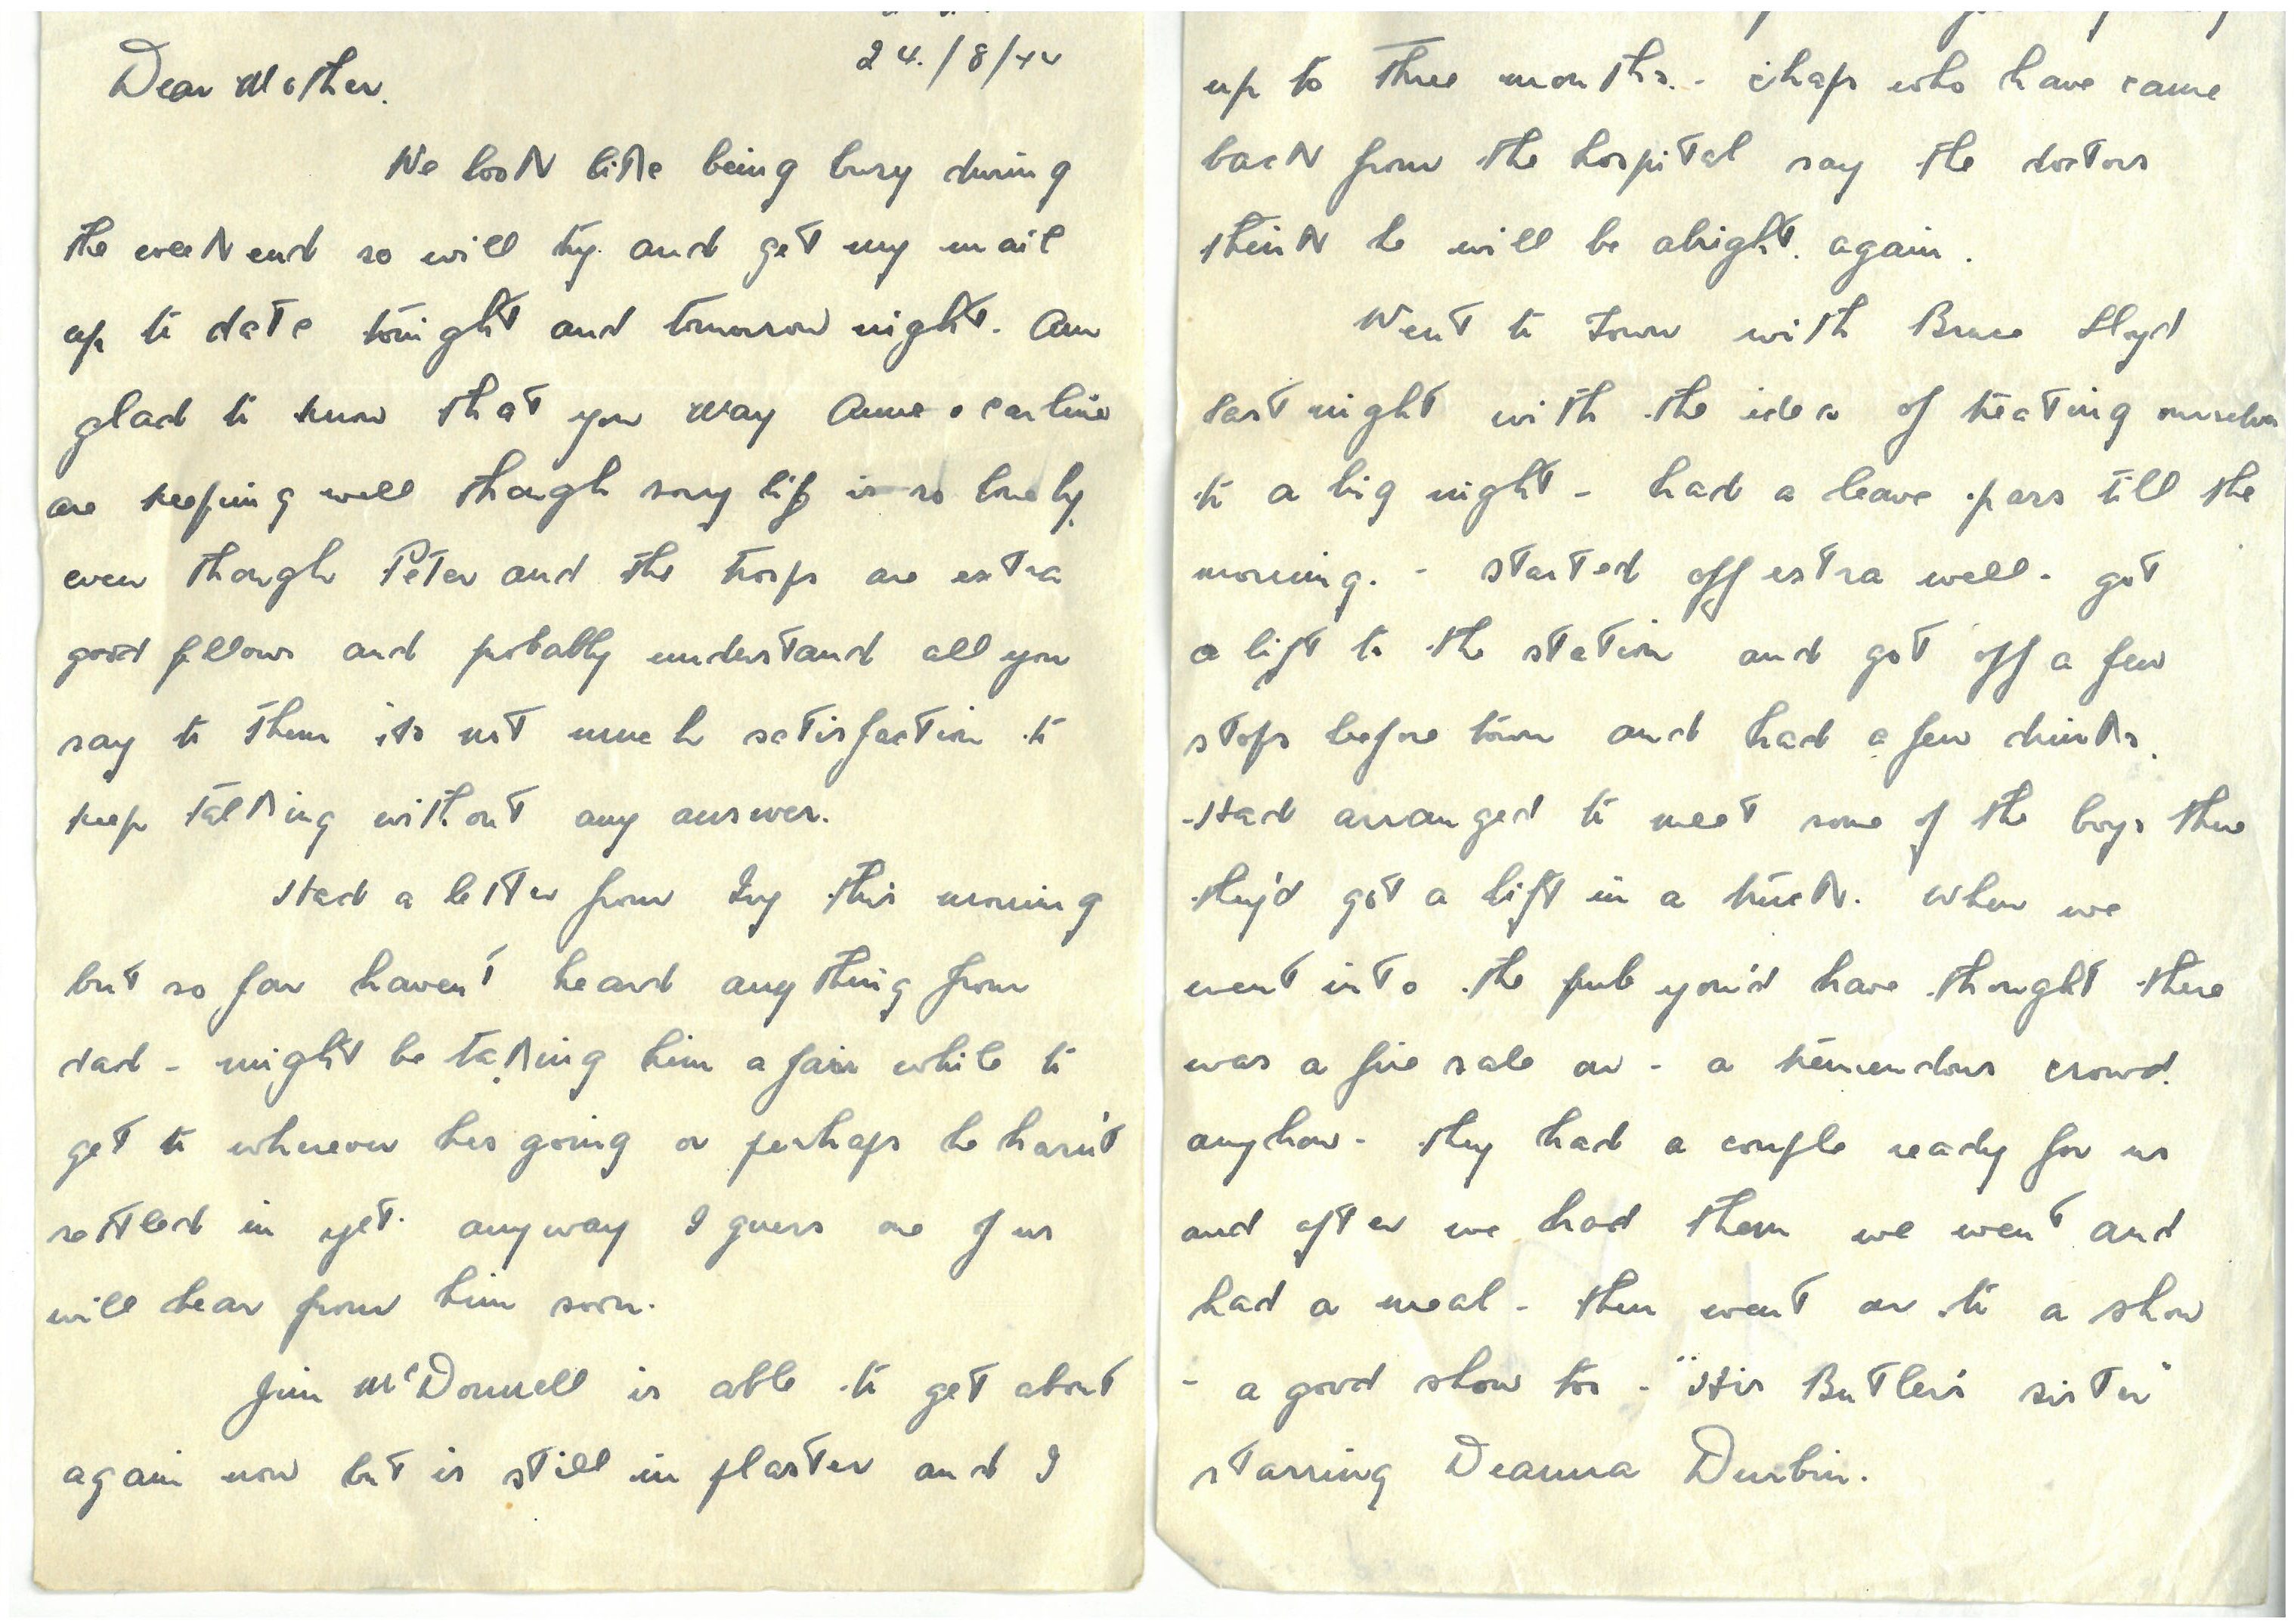 24./8/44
Dear Mother.
We look like being busy during
the weekend so will try and get my mail
up to date tonight and tomorrow night. Am
glad to know that you May Anne & Carline
are keeping well though sorry life is so lonely
even though Peter and the troops are extra
good fellows and probably understand all you
say to them its not much satisfaction to
keep talking without any answer.
Had a letter from Ivy this morning
but so far haven't heard anything from
dad - might be taking him a fair while to
get to wherever hes going or perhaps he hasn't
settled in yet. anyway I guess one of us
will hear from him soon.
Jim McDonnell is able to get about
again now but is still in plaster and I
up to three months. - chaps who have came
back from the hospital say the doctors
think he will be alright. again.
Went to town with Bruce Lloyd
last night with the idea of treating ourselves
to a big night - had a leave pass till the
morning. - started off extra well - got
a lift to the station and got off a few
stops before town and had a few drinks.
- Had arranged to meet some of the boys there
they'd got a lift in a truck. When we
went into the pub you'd have thought there
was a fire sale on - a tremendous crowd.
anyhow - they had a couple ready for us
and after we had them we went and
had a meal - then went on to a show
- a good show too - "His Butler's sister"
starring Deanna Durbin.